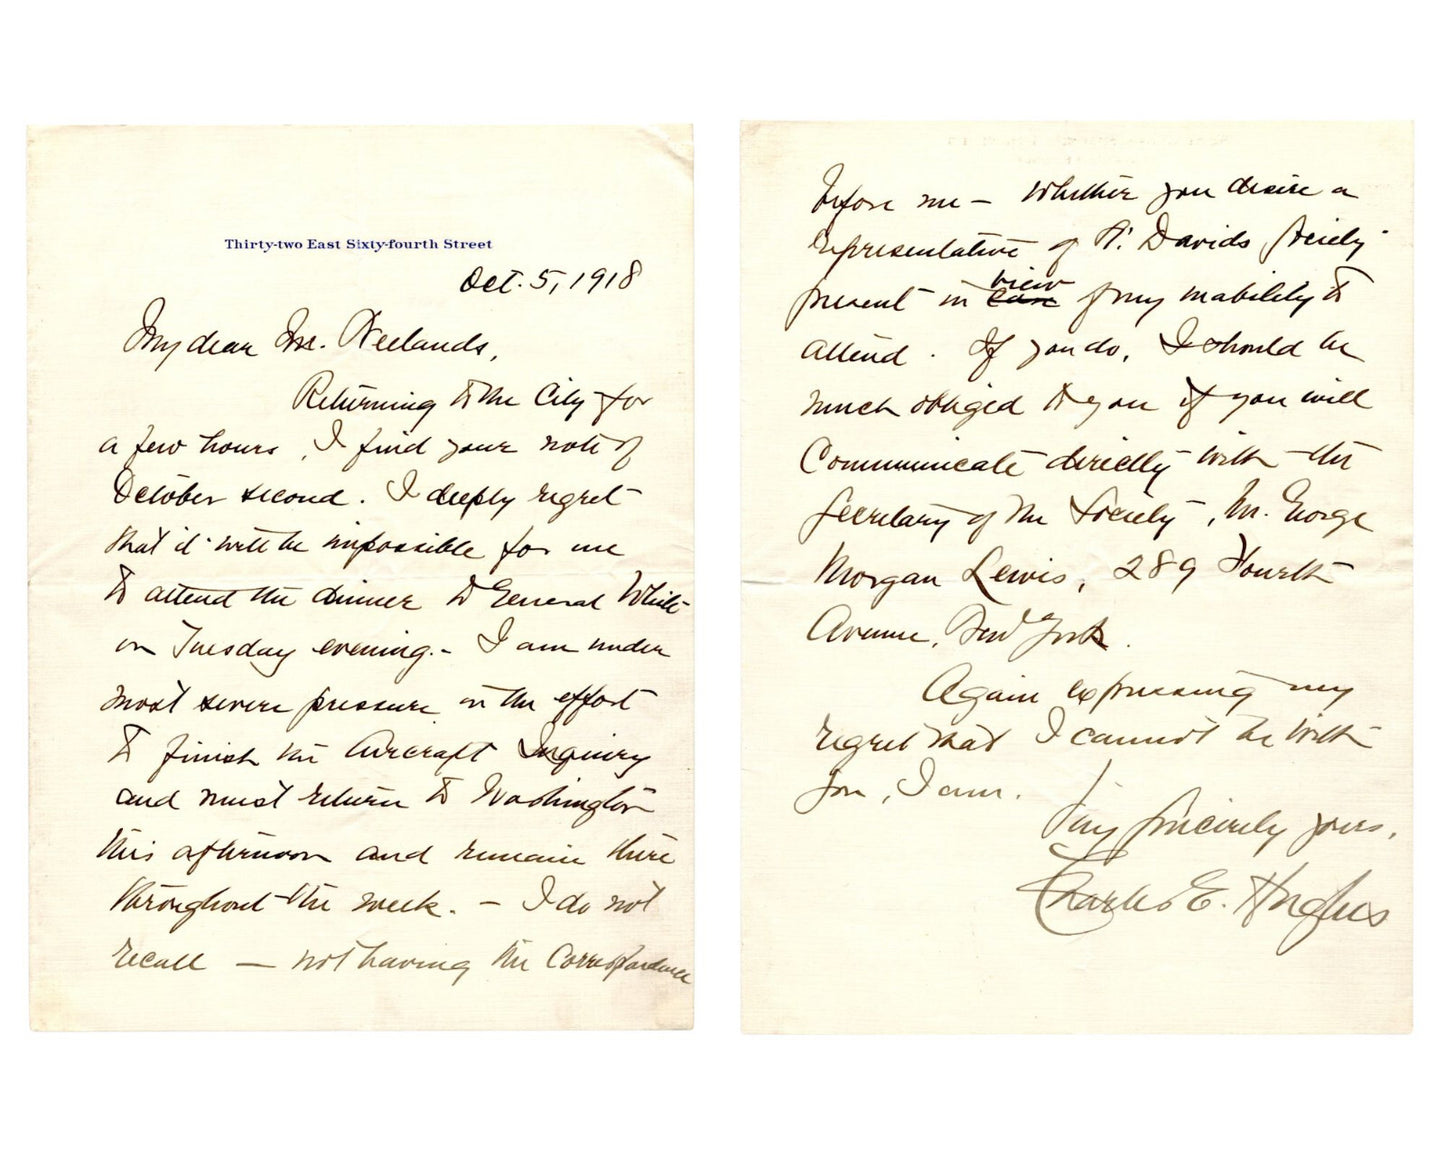 Thirty-two East Sixty-fourth Street
Oct. 5, 1918
My dear Mr. Neelands,
Returning to the City for
a few hours, I find your note of
October second. I deeply regret
that it will be impossible for me
to attend the dinner to General White
on Tuesday evening. - I am under
most severe pressure in the effort
to finish the Aircraft Inquiry
and must return to Washington
this afternoon and remain there
throughout the week. - I do not
recall — not having the correspondence
before me — whether you desire a
representative of St. Davids Society
present in case view of my inability to
attend. If you do, I should be
much obliged to you if you will
Communicate directly with the
Secretary of the Society, Mr. George
Morgan Lewis, 289 Fourth
Avenue, New York.
Again expressing my
regret that I cannot be with
you, I am.
Very sincerely yours,
Charles E. Hughes